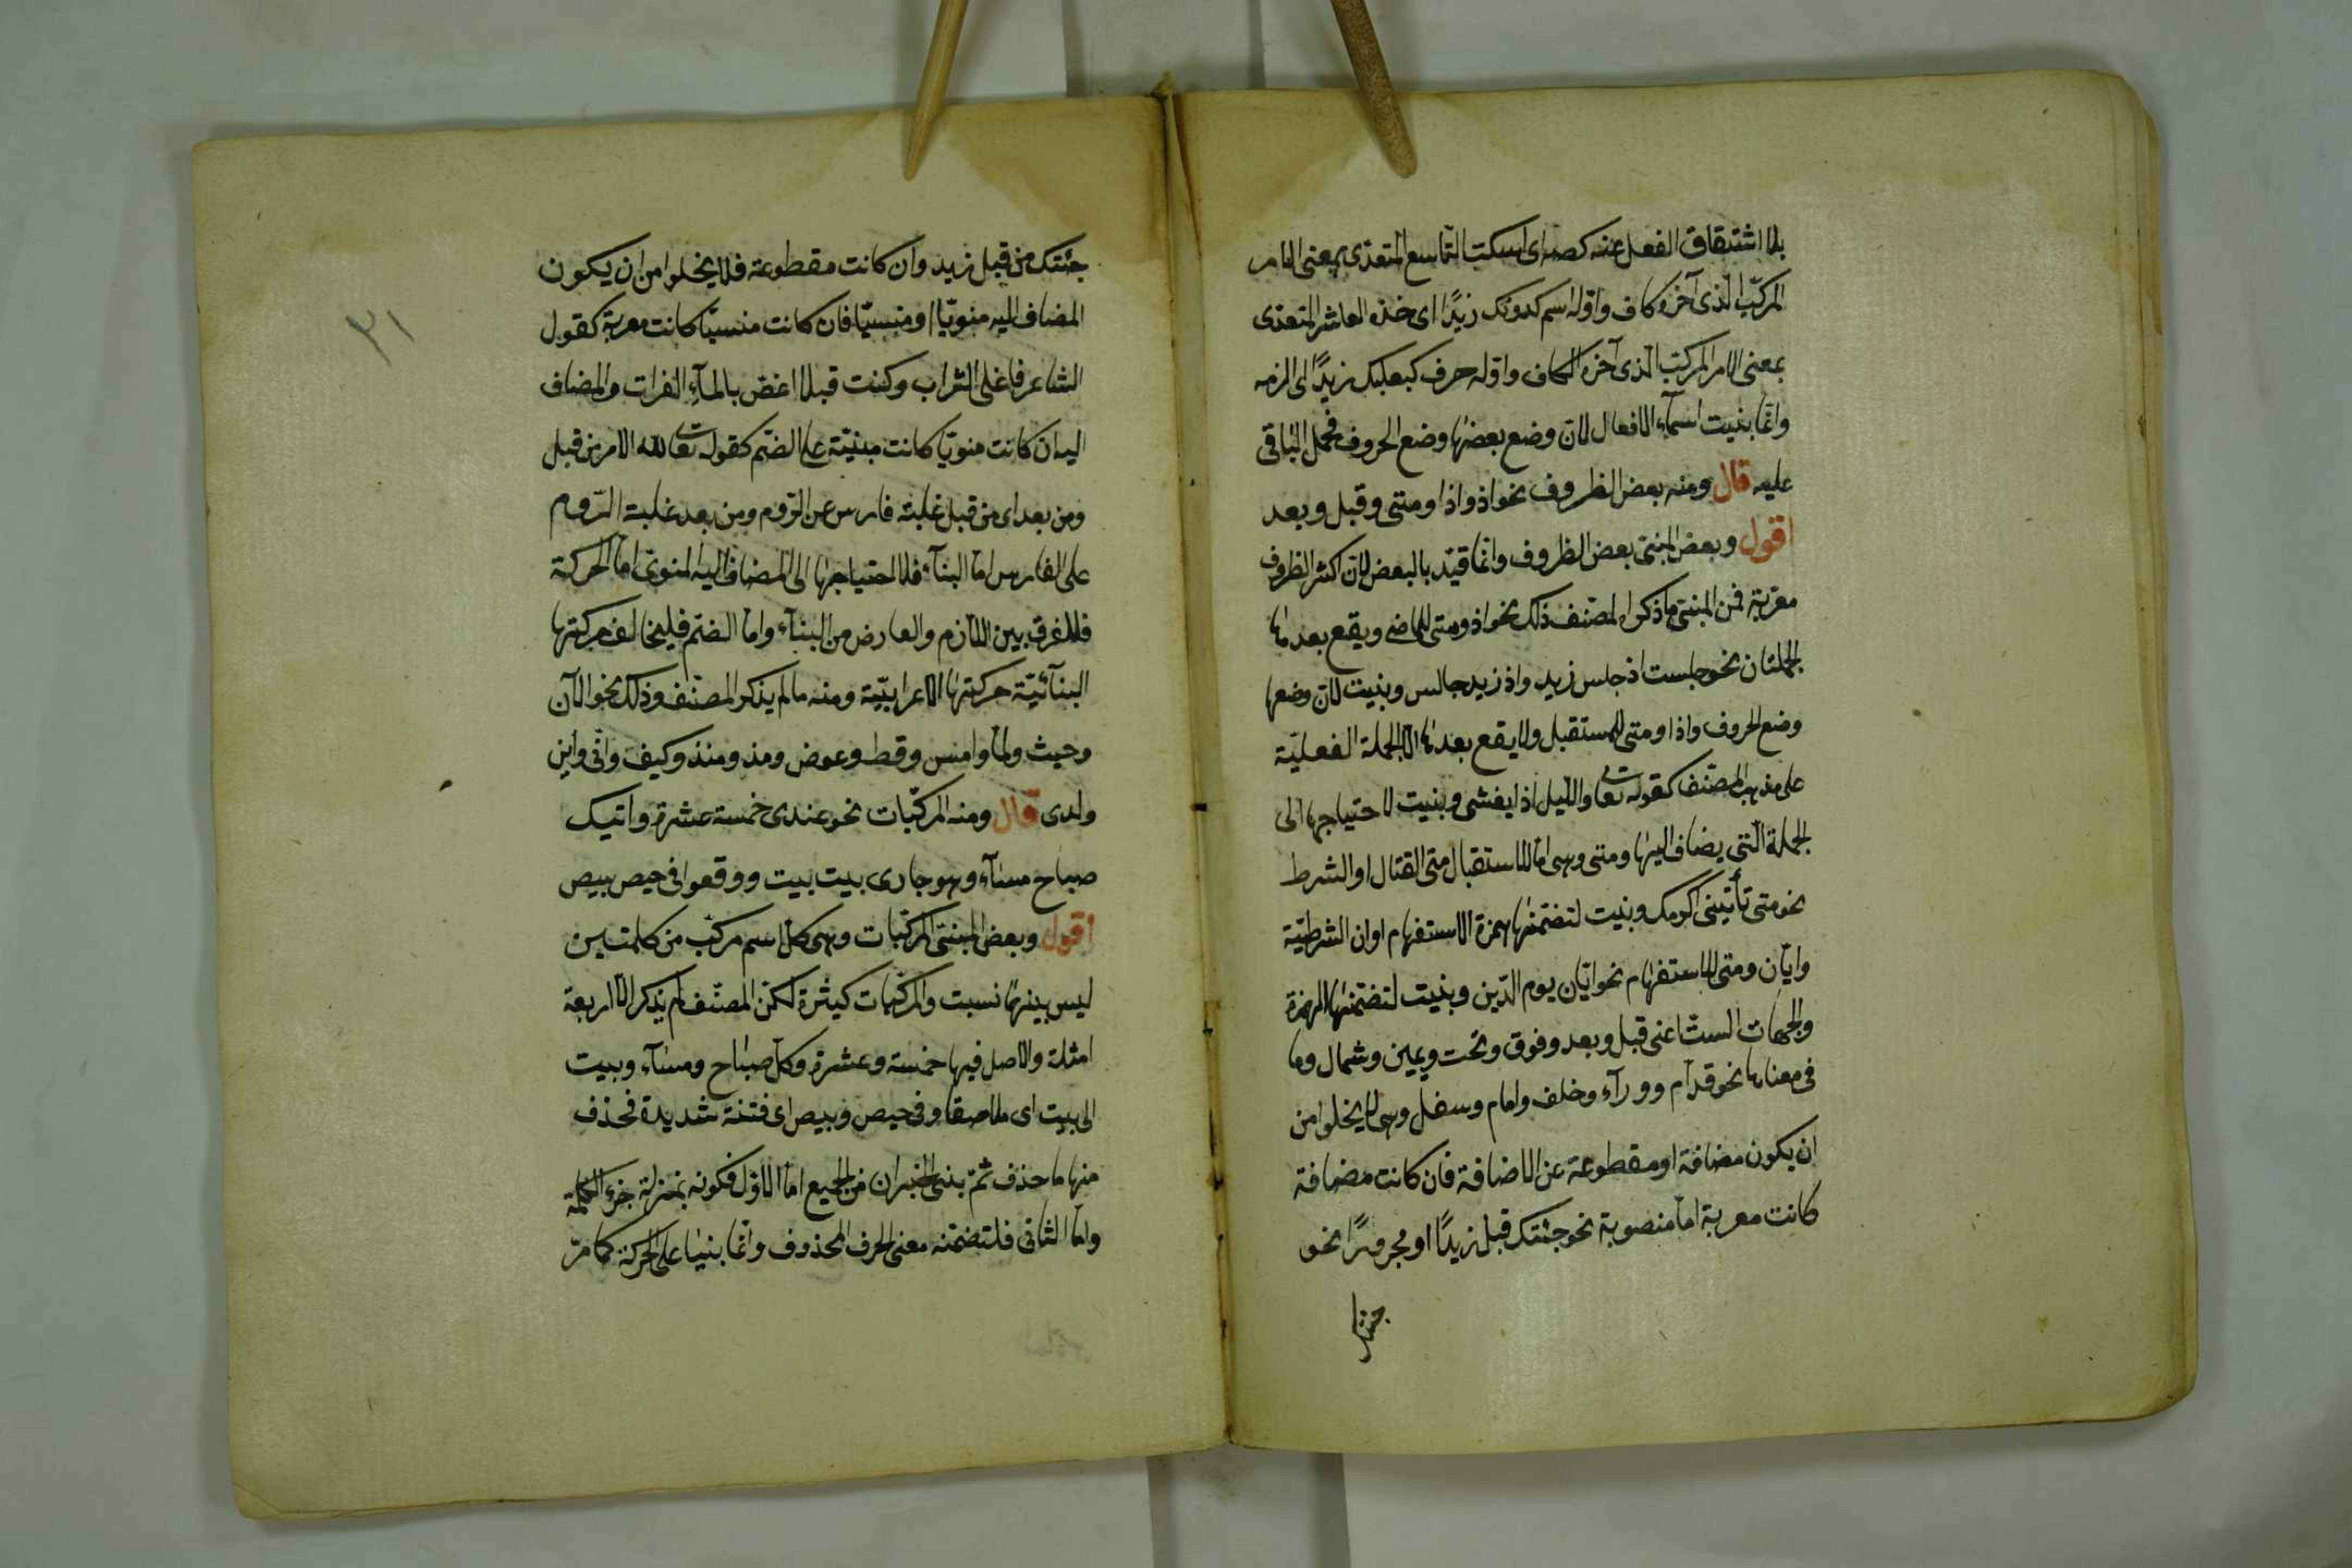 بلا اشتقاق الفعل عنه كصه اى اسكت التاسع المتعدّى بمعنى الامر
المركّب الّذى آخره كاف واوّله اسم كدونك زيدًا اى خذه العاشر المتعدّى
بمعنى الامر المركّب الّذى آخره الكاف واوّله حرف كبعليك زيدًا اى الزمه
وانّما بنيت اسمآء الافعال لانّ وضع بعضها وضع الحروف فحمل الباقى
عليه قال ومنه بعض الظروف نحو اذ واذا ومتى وقبل وبعد
اقول وبعض المبنى بعض الظروف وانّما قيّد بالبعض لانّ اكثر الظروف
معربة فمن المبنى ما ذكراه لمصنّف ذلك نحو اذ ومتى للماضى ويقع بعدها
الجملتان نحو جلست اذ جلس زيد واذ زيد جالس وبنيت لانّ وضعها
وضع الحروف واذا ومتى للمستقبل ولا يقع بعدها الّا الجملة الفعليّة
على مذهب المصنّف كقوله تعا والليل اذا يغشى وبنيت لاحتياجها الى
الجملة الّتى يضاف اليها ومتى وهى امّا للاستقبال متى القتال او الشرط
نحو متى تأتينى اكرمك وبنيت لتضمّنها همزة الاستفهام او ان الشرطيّة
وايّان ومتى للاستفهام نحو ايّان يوم الدّين وبنيت لتضمّنها الهمزة
والجهات الستّ اعنى قبل وبعد وفوق وتحت ويمين وشمال وما
فى معناها نحو قدّام وورآء وخلف وامام وسفل وهى لا يخلوا من
ان يكون مضافة او مقطوعة عن الاضافة فان كانت مضافة
كانت معربة امّا منصوبة نحو جئتك قبل زيدًا او مجرورًا نحو
جئتك من قبل زيد وان كانت مقطوعة فلا يخلوا من ان يكون
المضاف اليه منويّا او منسيّا فان كانت منسيّا كانت معربة كقول
الشاعر فاغلى الشراب وكنت قبلا اغصّ بالمآء الفرات والمضاف
اليه ان كانت منويّا كانت مبنيّة على الضمّ كقوله تعا لله الامر من قبل
ومن بعد اى من قبل غلبة فارس عن الرّوم ومن بعد غلبة الرّوم
على الفارس امّا البنآء فلاحتياجها الى المضاف اليه المنوى امّا الحركة
فللفرق بين اللازم والعارض من البنآء وامّا الضمّ فليخالف حركتها
البنآئيّة حركتها الاعرابيّة ومنه ما لم يذكر المصنّف وذلك نحو الآن
وحيث ولمّا وامس وقط وعوض ومذ ومنذ وكيف وانّى واين
ولدى قال ومنه المركّبات نحو عندى خمسة عشرة واتيك
صباح مسآء وهو جارى بيت بيت ووقعوا فى حيص بيص
اقول وبعض المبنى المركّبات وهى كلّ اسم مركّب من كلمتين
ليس بينهما نسبت والمركّبات كيثرة لكنّ المصنّف لم يذكر الّا اربعة
امثلة والاصل فيها خمسة وعشرة وكلّ صباح ومسآء وبيت
الى بيت اى ملاصقا وفى حيص وبيص اى فتنة شديدة فحذف
منها ما حذف ثمّ بنى الجزان من الجميع امّا الاوّل فكونه بمنزلة جزء الكلمة
وامّا الثانى فلتضمّنه معنى الحرف المحذوف وانّما بنيا على الحركة كما مرّ
٣١